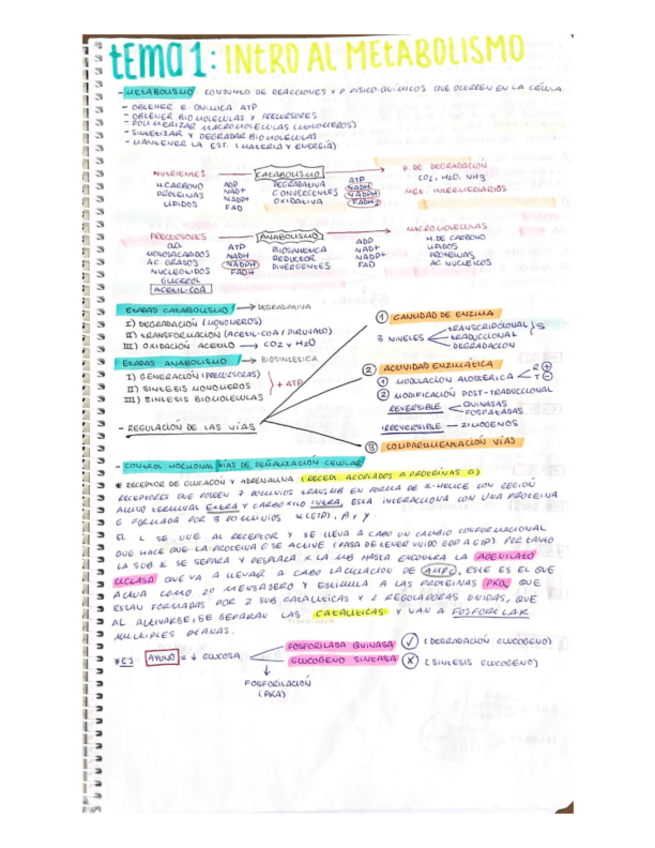 tema 1: INTRO AL METABOLISMO
- METABOLISMO CONJUNTO DE REACCIONES Y P. FISICO-QUIMICOS QUE OCURREN EN LA CÉLULA
- OBTENER E. QUIMICA ATP
- OBTENER BIOMOLECULAS Y PRECURSORES
- POLIMERIZAR MACROMOLECULAS (MONOMEROS)
- SINTETIZAR Y DEGRADAR BIOMOLECULAS
- MANTENER LA EST. (MATERIA Y ENERGÍA)
NUTRIENTES CATABOLISMO P. DE DEGRADACIÓN
H.CARBONO ADP DEGRADATIVA ATP CO2, H2O, NH3
PROTEINAS NAD+ CONVERGENTES NADH MET. INTERMEDIARIOS
LIPIDOS NADP+ OXIDATIVA NADPH
FAD FADH2
PRECURSORES ANABOLISMO MACROMOLECULAS
aa ATP BIOSINTETICA ADP H. DE CARBONO
MONOSACARIDOS NADH REDUCTOR NAD+ LIPIDOS
AC. GRASOS NADPH DIVERGENTES NADP+ PROTEINAS
NUCLEOTIDOS FADH FAD AC. NUCLEICOS
GLICEROL
ACETIL-COA
ETAPAS CATABOLISMO → DEGRADATIVA
I) DEGRADACIÓN (MONOMEROS)
II) TRANSFORMACIÓN (ACETIL-COA / PIRUVATO)
III) OXIDACIÓN ACETILO → CO2 Y H2O
ETAPAS ANABOLISMO → BIOSINTETICA
I) GENERACIÓN (PRECURSORAS)
II) SINTESIS MONOMEROS + ATP
III) SINTESIS BIOMOLECULAS
- REGULACIÓN DE LAS VÍAS
① CANTIDAD DE ENZIMA
3 NIVELES TRANSCRIPCIONAL
TRADUCCIONAL
DEGRADACION
② ACTIVIDAD ENZIMÁTICA
① MODULACION ALOSTERICA R +
T -
② MODIFICACIÓN POST-TRADUCCIONAL
REVERSIBLE QUINASAS
FOSFATASAS
IRREVERSIBLE — ZIMOGENOS
③ COMPARTIMENTACIÓN VÍAS
- CONTROL HORMONAL VÍAS DE SEÑALIZACIÓN CELULAR
* RECEPTOR DE GLUCAGÓN Y ADRENALINA (RECEPT. ACOPLADOS A PROTEÍNAS G)
RECEPTORES QUE POSEEN 7 DOMINIOS TRANSMB EN FORMA DE α-HELICE CON REGIÓN
AMINO TERMINAL EXTRA Y CARBOXILO INTRA, ESTA INTERACCIONA CON UNA PROTEINA
G FORMADA POR 3 DOMINIOS α(GTP), β, γ.
EL L SE UNE AL RECEPTOR Y SE LLEVA A CABO UN CAMBIO CONFORMACIONAL
QUE HACE QUE LA PROTEINA G SE ACTIVE (PASA DE TENER UNIDO GDP A GTP). POR TANTO
LA SUB α SE SEPARA Y DESPLAZA X LA MB HASTA ENCONTRA LA ADENILATO
CICLASA QUE VA A LLEVAR A CABO LA CICLACION DE AMPC, ESTE ES EL QUE
ACTUA COMO 2O MENSAJERO Y ESTIMULA A LAS PROTEINAS PKA, QUE
ESTAN FORMADAS POR 2 SUB. CATALITICAS Y 2 REGULADORAS UNIDAS, QUE
AL ACTIVARSE, SE SEPARAN LAS CATALITICAS Y VAN A FOSFORILAR
MULTIPLES DIANAS.
* EJ: AYUNO = ↓ GLUCOSA FOSFORILASA QUINASA ✓ (DEGRADACIÓN GLUCOGENO)
GLUCOGENO SINTASA X (SINTESIS GLUCOGENO)
↓
FOSFORILACIÓN
(PKA)